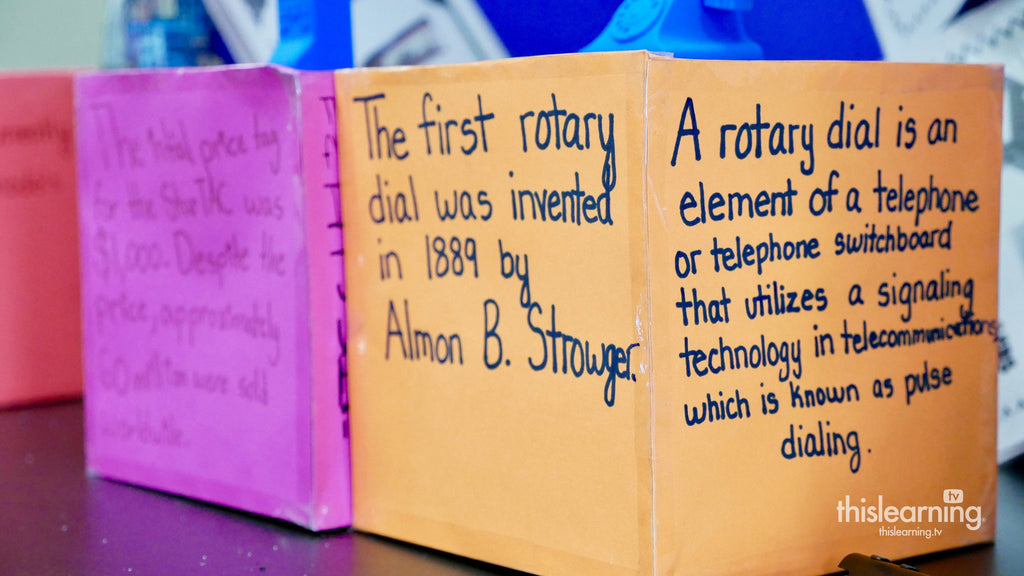 The initial price tag
for the StarTAC was
$1,000. Despite the
price, approximately
60 million were sold
worldwide.
The first rotary
dial was invented
in 1889 by
Almon B. Strowger.
A rotary dial is an
element of a telephone
or telephone switchboard
that utilizes a signaling
technology in telecommunications
which is known as pulse
dialing.
thislearning tv
thislearning.tv